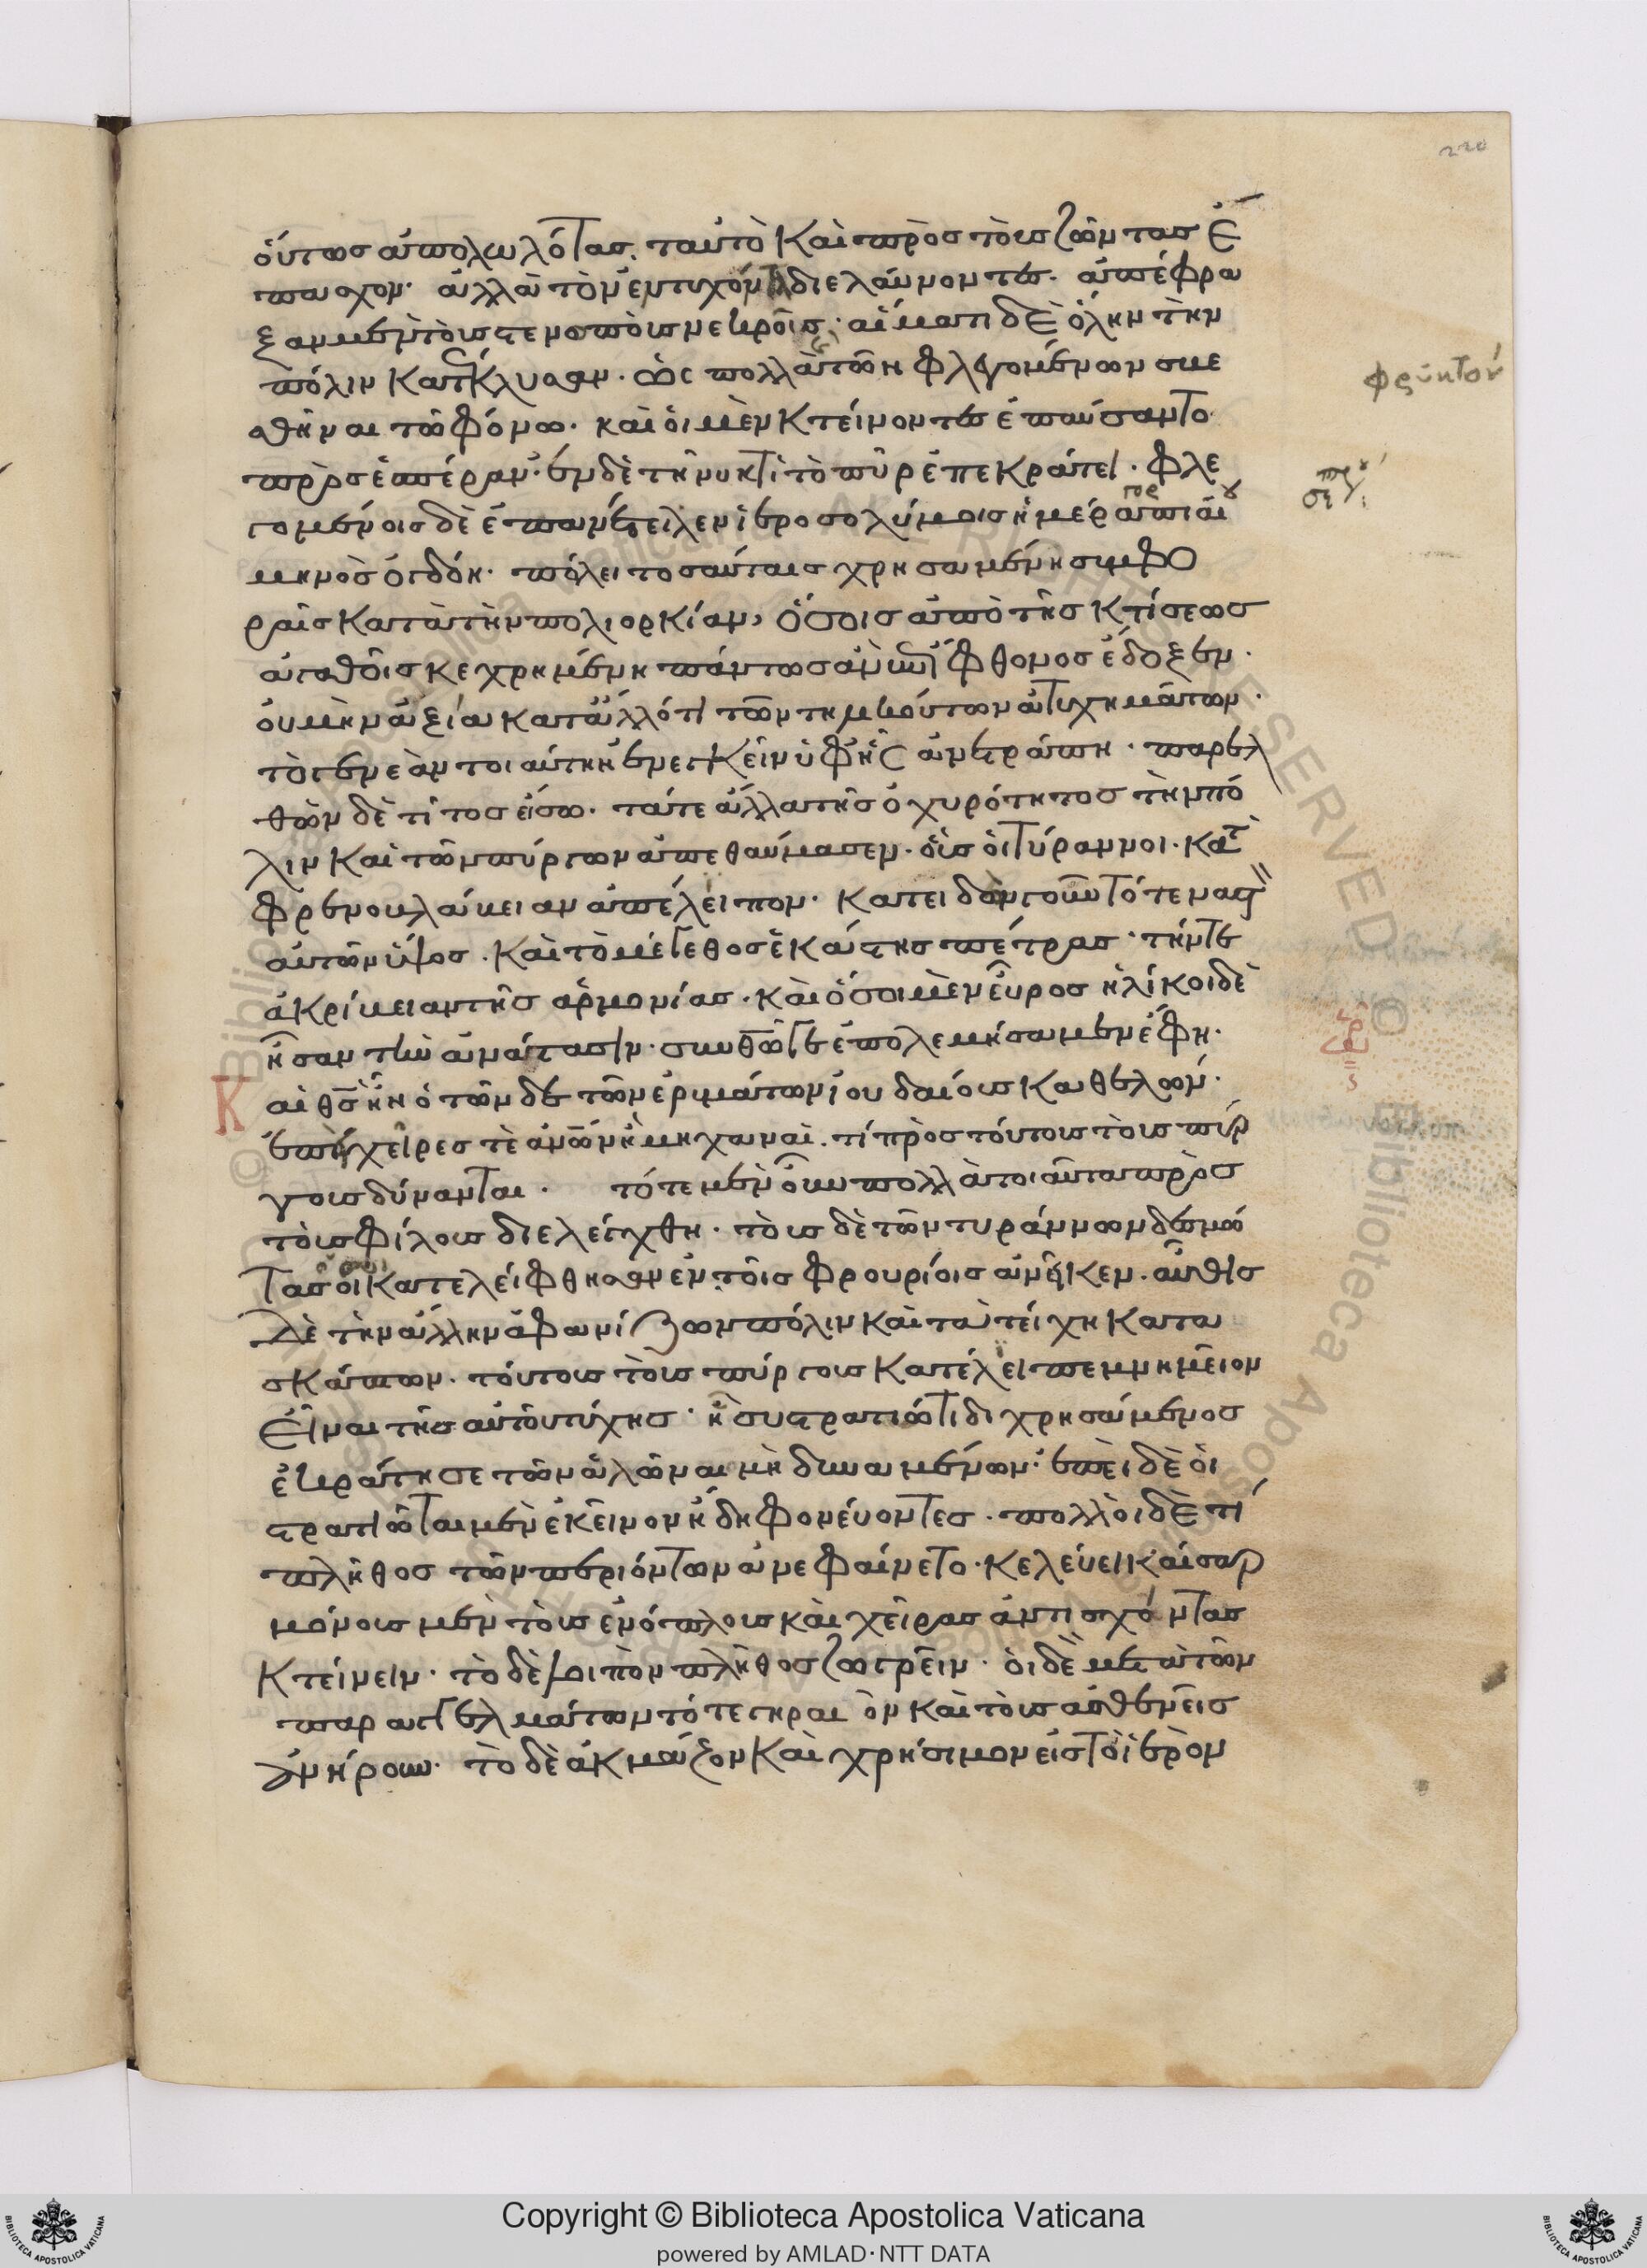 220
ὄυτως ἀπολωλότας. ταὐτὸ καὶ πρὸς τοὺς ζῶντας ἔ
πασχον· ἀλλὰ τὸν ἐντυχόντα διελαύνοντες. ἀπέφρα
ξαν μὲν τοὺς στενωποὺς νεκροῖς· αἵματι δὲ ὅλην τὴν
πόλιν κατέκλυσαν. ὡς πολλὰ τῶν φλεγομένων σβε
σθῆναι τῶ φόνω. καὶ οἱ μὲν κτείνοντες ἐπαύσαντο
πρὸς ἑσπέραν· ἐν δὲ τῆ νυκτὶ τὸ πῦρ ἐπεκράτει. φλε
γομένοις δὲ ἐπανέτειλεν ἱεροσολύμοις ἡμέρα γορπιαίου
μηνὸς ὀγδόη. πόλει τοσαύταις χρησαμένη συμφο
ραῖς κατὰ τὴν πολιορκίαν, ὅσοις ἀπὸ τῆς κτίσεως
ἀγαθοῖς κεχρημένη πάντως ἂν ἐπίφθονος ἔδοξεν.
οὐ μὴν ἀξία κατ' ἄλλό τι τῶν τηλικούτων ἀτυχημάτων.
τὸ γενεὰν τοιαύτην ἐνεγκεῖν ὑφ' ἧς ἀνετράπη. παρελ
θὼν δὲ τίτος εἴσω. τά τε ἄλλα τῆς ὀχυρότητος τὴν πό
λιν καὶ τῶν πύργων ἀπεθαύμασεν. οὓς οἱ τύραννοι. κατὰ
φρενοβλάβειαν ἀπέλειπον. κατειδὼν γοῦν τό τε ναστὸν
αὐτῶν ὕψος. καὶ τὸ μέγεθος ἑκάστης πέτρας· τήν τε
ἀκρίβειαν τῆς ἁρμονίας. καὶ ὅσοι μὲν εὖρος ἡλίκοι δὲ
ἦσαν τὴν ἀνάστασιν. σὺν θεῶ γε ἐπολεμήσαμεν ἔφη.
καὶ θεὸς ἦν ὁ τῶνδε τῶν ἐρυμάτων ἰουδαίους καθελών.
ἐπεὶ χεῖρές τε ἀνθρώπων ἢ μηχαναὶ. τί πρὸς τούτους τοὺς πύρ
γους δύνανται. τότε μὲν οὖν πολλὰ τοιαῦτα πρὸς
τοὺς φίλους διελέχθη. τοὺς δὲ τῶν τυράννων δεσμώ
τας ὅσοι κατελείφθησαν ἐν τοῖς φρουρίοις ἀνῆκεν. αὖθις
δὲ τὴν ἄλλην ἀφανίζων πόλιν καὶ τὰ τείχη κατα
σκάπτων. τούτους τοὺς πύργους κατέλειπε μνημεῖον
εἶναι τῆς αὐτοῦ τύχης· ἧ συστρατιώτιδι χρησάμενος
ἐκράτησε τῶν ἁλῶναι μὴ δυναμένων. ἐπεὶ δὲ οἱ
στρατιῶται μὲν ἔκαμνον ἤδη φονεύοντες. πολλοὶ δὲ τί
πλῆθος τῶν περιόντων ἀνεφαίνετο. κελεύει καῖσαρ
μόνους μὲν τοὺς ἐνόπλους καὶ χεῖρας ἀντισχόντας
κτείνειν. τὸ δὲ λοιπὸν πλῆθος ζωγρεῖν. οἱ δὲ μετὰ τῶν
παραγγελμάτων τό τε γηραιὸν καὶ τοὺς ἀσθενεῖς
ἀνήρουν. τὸ δὲ ἀκμάζον καὶ χρήσιμον εἰς τὸ ἱερὸν
Copyright © Biblioteca Apostolica Vaticana
powered by AMLAD·NTT DATA